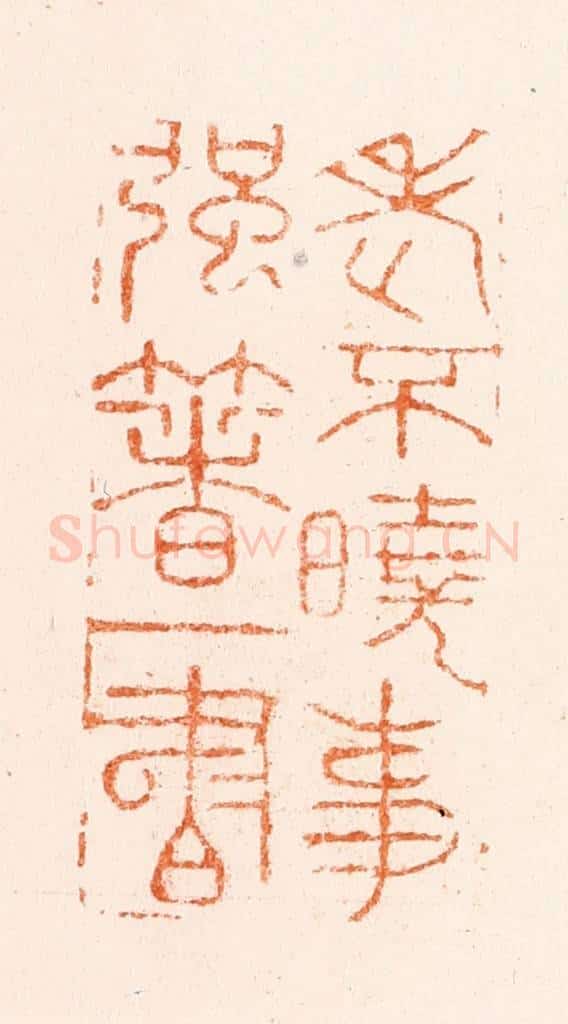 老不曉事
强著一書
Shufawang.CN